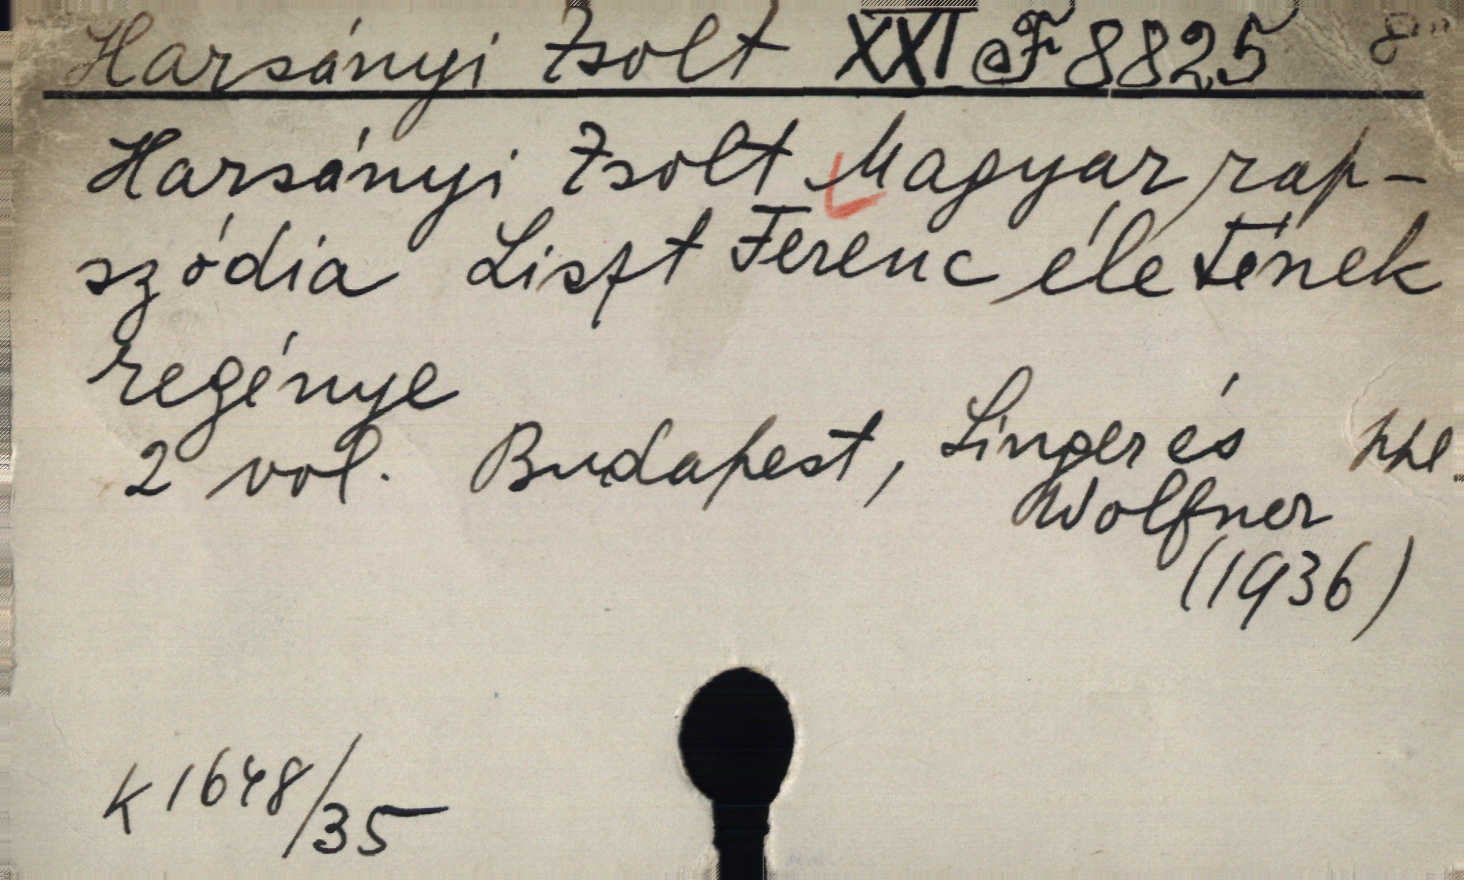 Harsányi Zsolt XXI @F 8825 8'''
Harsányi Zsolt Magyar rap-
szódia Liszt Ferenc életének
regénye
2 vol. Budapest, Singer és ppl.
Wolfner
(1936)
K 1648/35